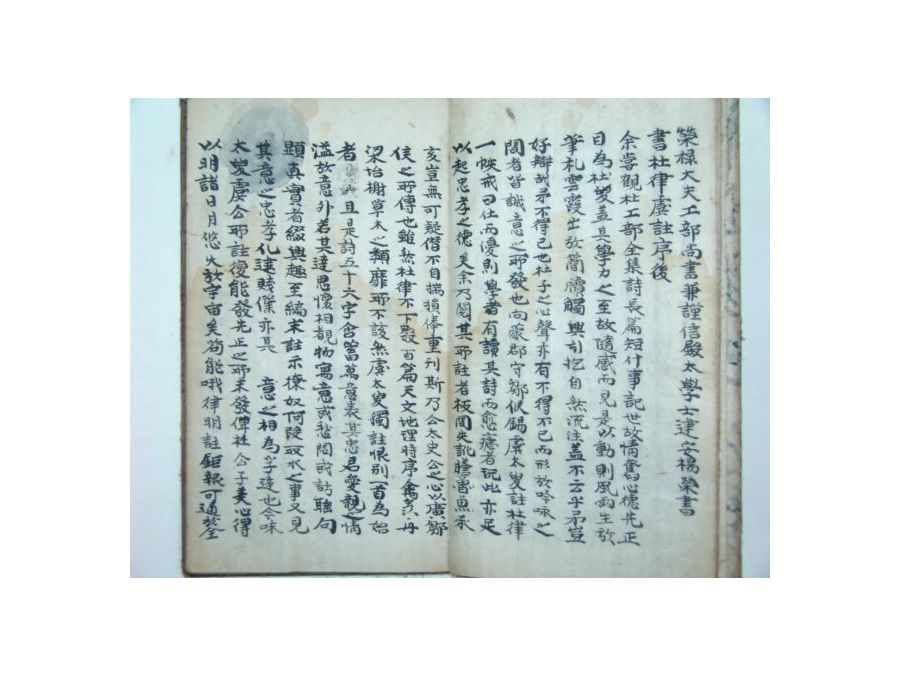 榮祿大夫工部尚書兼謹信殿太學士建安楊榮書
書杜律虞註序後
余嘗觀杜工部全集詩長篇短什事記世故情奮心德光正
日為杜 盖其學力之至故隨感而見是以動則風 生故
筆札雲霞出於簡牘觸興引 自然流注盖不 乎 豈
好辯 不得已也杜子之心聲亦有不得不已而形於吟咏之
間者皆誠意之所發也向 郡守鄒侯錫虞太叟註杜律
一帙戒曰仕而優則學者有讀其詩而愈瘧者玩此亦足
以起忠孝之德矣余乃閱其所註者板間失訛謄魯魚承
亥豈無可疑僭不自揣損俸重刊斯乃公太史公之心以廣鄒
侯之所傳也雖然杜律不下數百篇天文地理時序 舟
梁怡榭草木之類靡所不該然虞太叟獨註恨別一首為始
者 且是詩五十六字含蓄萬意表其忠君愛親之情
溢於意外若其達思懷相觀物寓意或愁悶或訪 句
顯真實者綴興趣至編末註示獠奴何 取水之事又見
其意之忠孝化達賤僕亦其 意之相為 達也今味
太叟虞公所註復能發先正之所未發俾杜公子美心得
以明諸日月悠久於宇宙矣苟能哦律明註 報可通